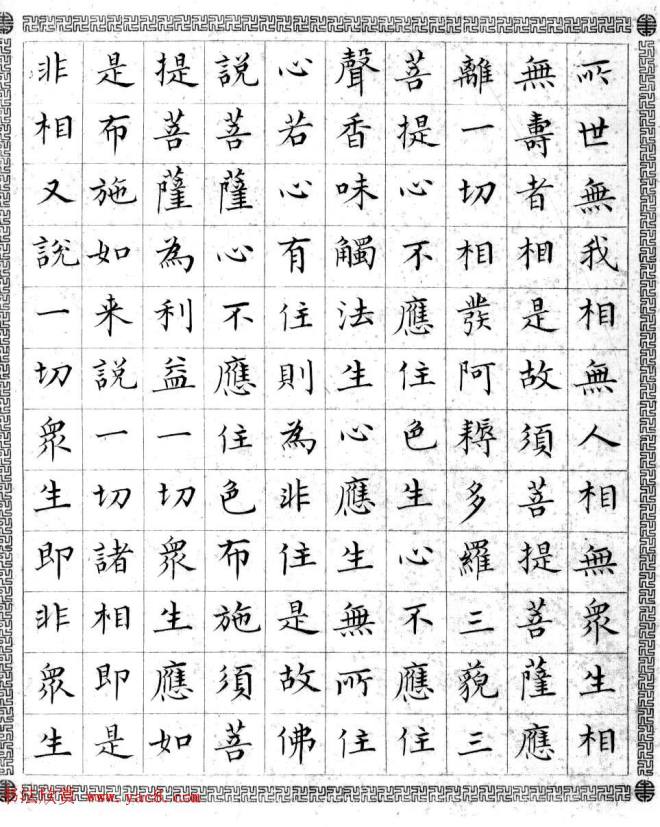 所世無我相無人相無眾生相
無壽者相是故須菩提菩薩應
離一切相發阿耨多羅三藐三
菩提心不應住色生心不應住
聲香味觸法生心應生無所住
心若心有住則為非住是故佛
說菩薩心不應住色布施須菩
提菩薩為利益一切眾生應如
是布施如来說一切諸相即是
非相又說一切眾生即非眾生
书法欣赏 www.yac8.com